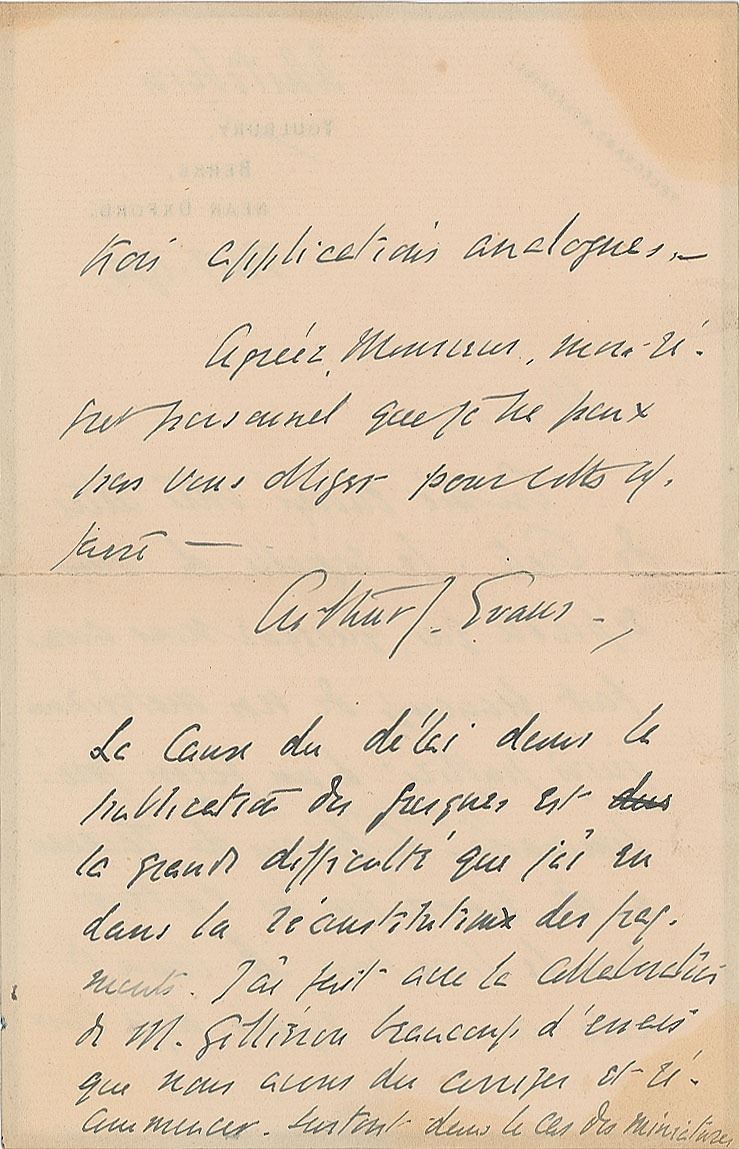 YOULBURY,
BERKS,
NEAR OXFORD.
trois applications analogues. —
Agréez, Monsieur, mon ré-
gret personnel que je ne peux
pas vous obliger pour cette
—
Arthur J. Evans —
La cause du délai dans la
publication des fresques est dans
la grande difficulté que j'ai eu
dans la réconstitution des frag-
ments. J'ai fait avec la collaboration
de M. Gilliéron beaucoup d'essais
que nous avons du corriger et ré-
commencer. surtout dans le cas des miniatures